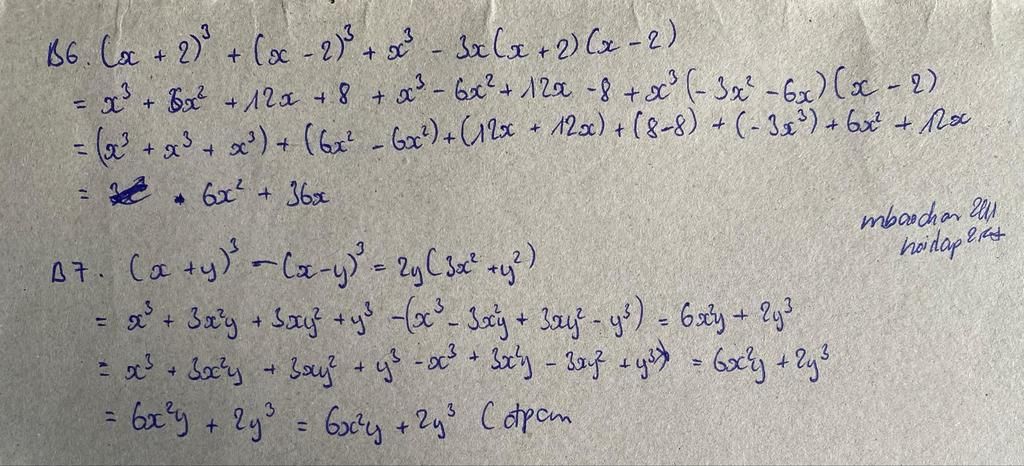 B6. (x + 2)³ + (x - 2)³ + x³ - 3x(x + 2)(x - 2)
= x³ + 6x² + 12x + 8 + x³ - 6x² + 12x - 8 + x³ (- 3x² - 6x)(x - 2)
= (x³ + x³ + x³) + (6x² - 6x²) + (12x + 12x) + (8-8) + (-3x³) + 6x² + 12x
= 6x² + 36x
B7. (x + y)³ - (x - y)³ = 2y(3x² + y²)
= x³ + 3x²y + 3xy² + y³ - (x³ - 3x²y + 3xy² - y³) = 6x²y + 2y³
= x³ + 3x²y + 3xy² + y³ - x³ + 3x²y - 3xy² + y³ = 6x²y + 2y³
= 6x²y + 2y³ = 6x²y + 2y³ (đpcm